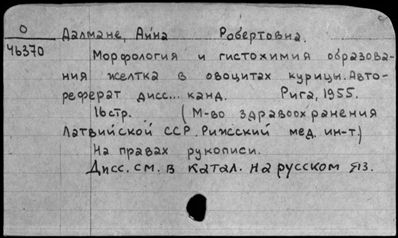 О
46370
Далмане, Айна Робертовна.
Морфология и гистохимия образова-
ния желтка в овоцитах курицы. Авто-
реферат дисс... канд. Рига, 1955.
16стр. (М-во здравоохранения
Латвийской ССР. Рижский мед. ин-т)
На правах рукописи.
Дисс. см. в катал. на русском яз.